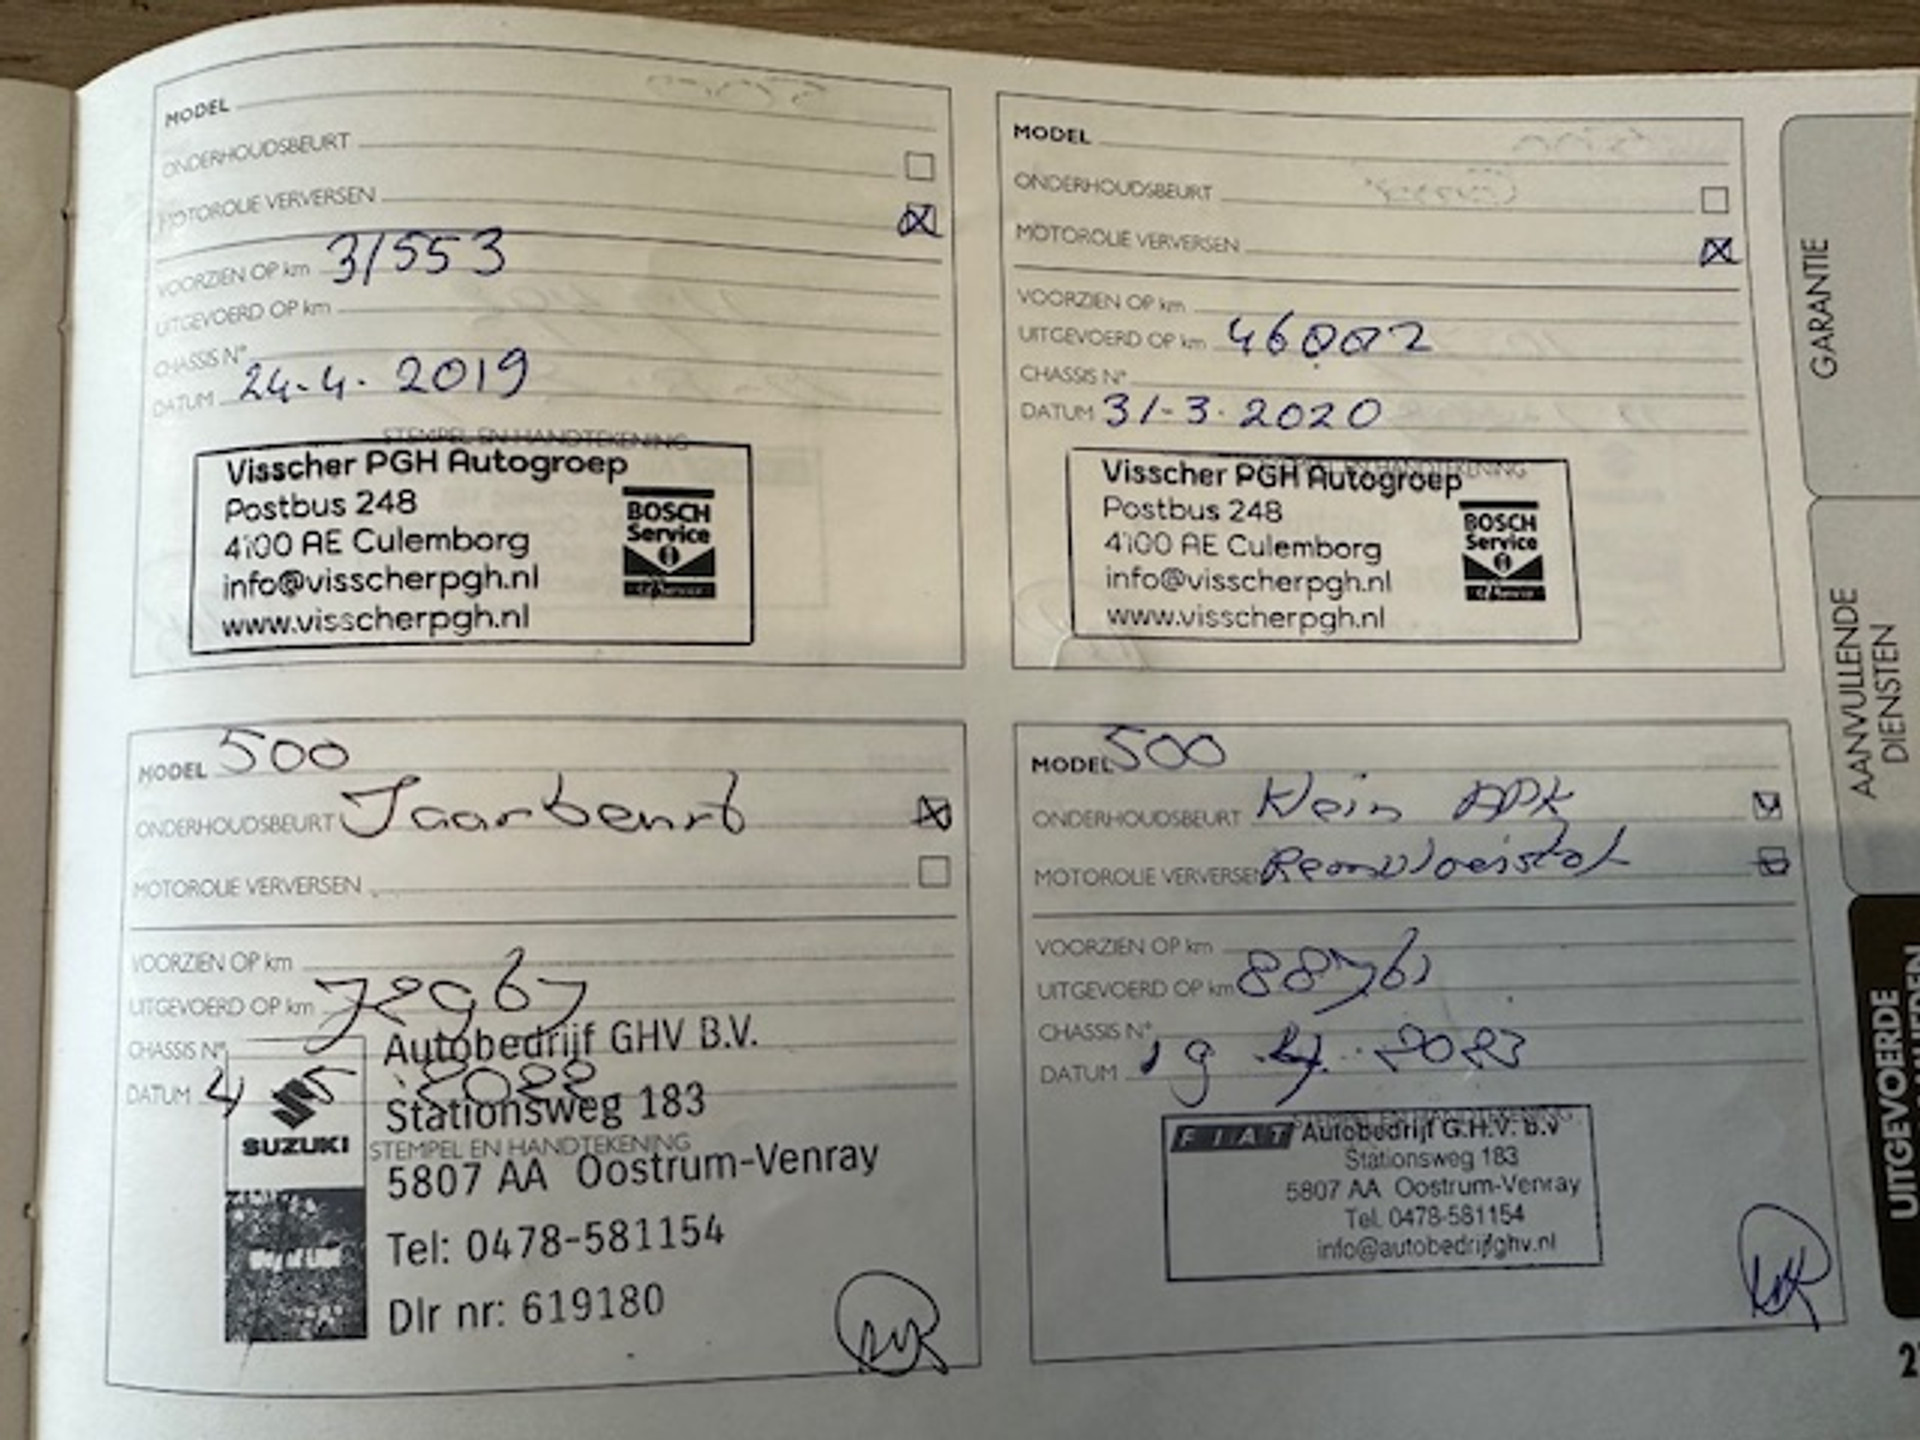 MODEL
ONDERHOUDSBEURT
MOTOROLIE VERVERSEN
VOORZIEN OP km 31553
UITGEVOERD OP km
CHASSIS N°
DATUM 24-4-2019
STEMPEL EN HANDTEKENING
Visscher PGH Autogroep
Postbus 248
4100 AE Culemborg
info@visscherpgh.nl
www.visscherpgh.nl
BOSCH
Service
MODEL
ONDERHOUDSBEURT
MOTOROLIE VERVERSEN
VOORZIEN OP km
UITGEVOERD OP km 46002
CHASSIS N°
DATUM 31-3-2020
STEMPEL EN HANDTEKENING
Visscher PGH Autogroep
Postbus 248
4100 AE Culemborg
info@visscherpgh.nl
www.visscherpgh.nl
BOSCH
Service
MODEL 500
ONDERHOUDSBEURT Jaarbeurt
MOTOROLIE VERVERSEN
VOORZIEN OP km
UITGEVOERD OP km
CHASSIS N°
DATUM 4 5 2022
SUZUKI
STEMPEL EN HANDTEKENING
Autobedrijf GHV B.V.
Stationsweg 183
5807 AA Oostrum-Venray
Tel: 0478-581154
Dlr nr: 619180
MODEL 500
ONDERHOUDSBEURT Klein APK
MOTOROLIE VERVERSEN Remvloeistof
VOORZIEN OP km
UITGEVOERD OP km 88761
CHASSIS N°
DATUM 19 4 2023
STEMPEL EN HANDTEKENING
FIAT Autobedrijf G.H.V. B.V
Stationsweg 183
5807 AA Oostrum-Venray
Tel. 0478-581154
info@autobedrijfghv.nl
GARANTIE
AANVULLENDE
DIENSTEN
UITGEVOERDE